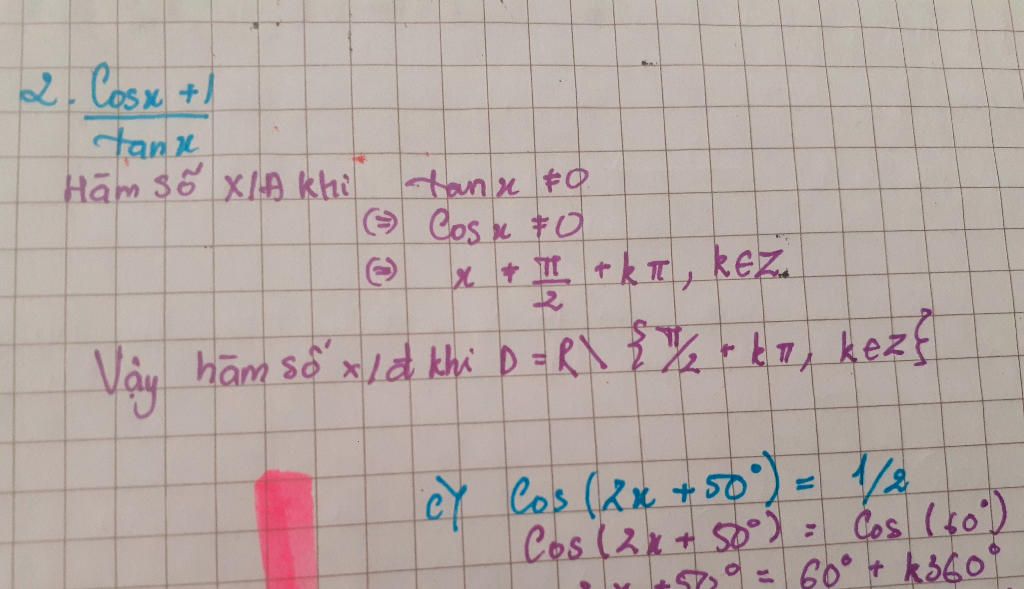 2. Cosx + 1
tan x
Hàm số X/Đ khi tanx ≠ 0
(=) Cos x ≠ 0
(=) x ≠ π/2 + kπ, k∈Z.
Vậy hàm số x/đ khi D = R \ {π/2 + kπ, k∈Z}
c) Cos (2x + 50°) = 1/2
Cos (2x + 50°) = Cos (60°)
x + 50° = 60° + k360°